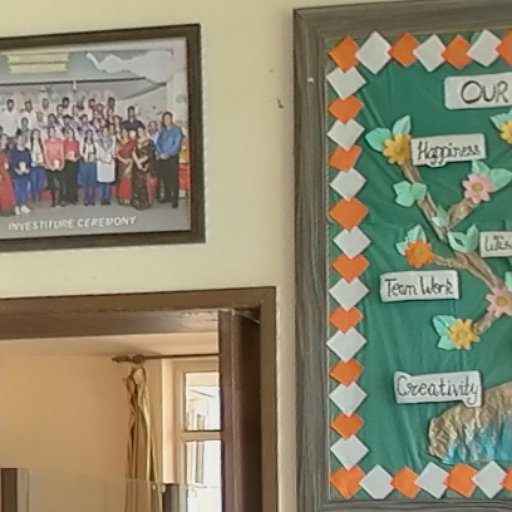 INVESTITURE CEREMONY
OUR
Happiness
Team Work
Creativity